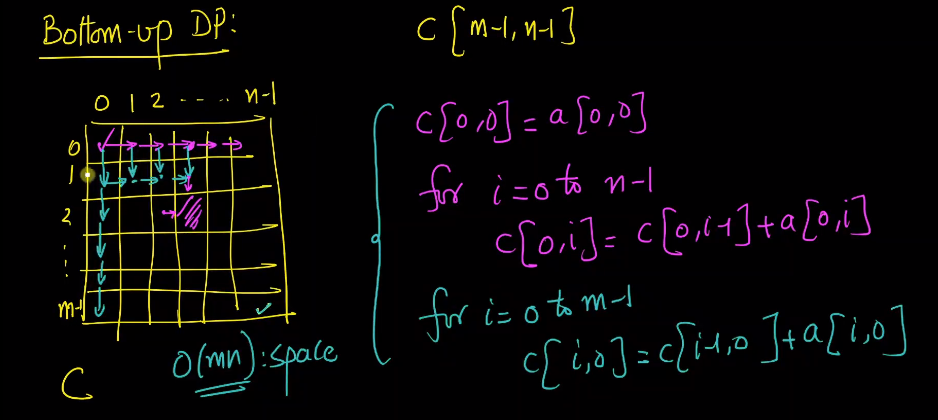 Bottom-up DP:
C[m-1, n-1]
0 1 2 ..... n-1
0
1
2
⋮
m-1
C
O(mn): space
C[0,0] = a[0,0]
for i=0 to n-1
C[0,i] = C[0,i-1] + a[0,i]
for i=0 to m-1
C[i,0] = C[i-1,0] + a[i,0]